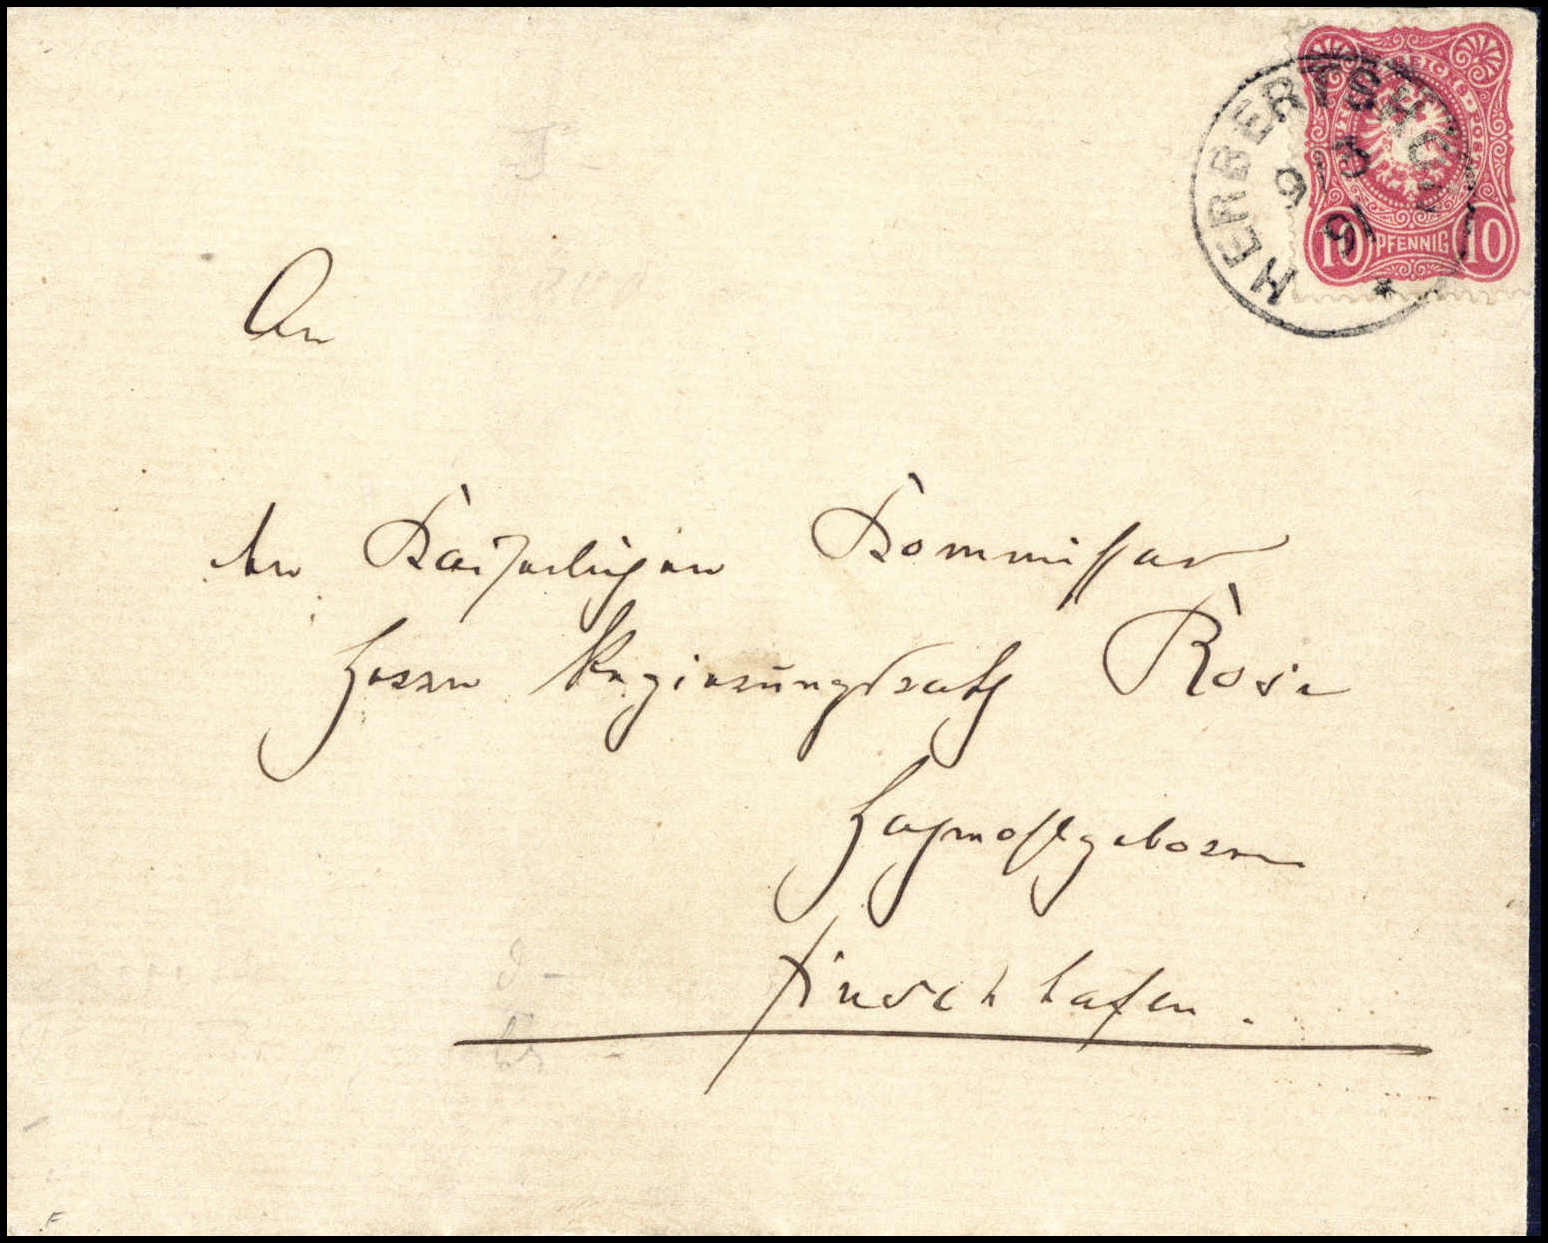 HERBERTSHÖH
9/3
91
*
DEUTSCHE REICHS-POST
10 PFENNIG 10
An
den Kaiserlichen Kommissar
Herrn Regierungsrath Rose
Hochwohlgeboren
Finschhafen.
F